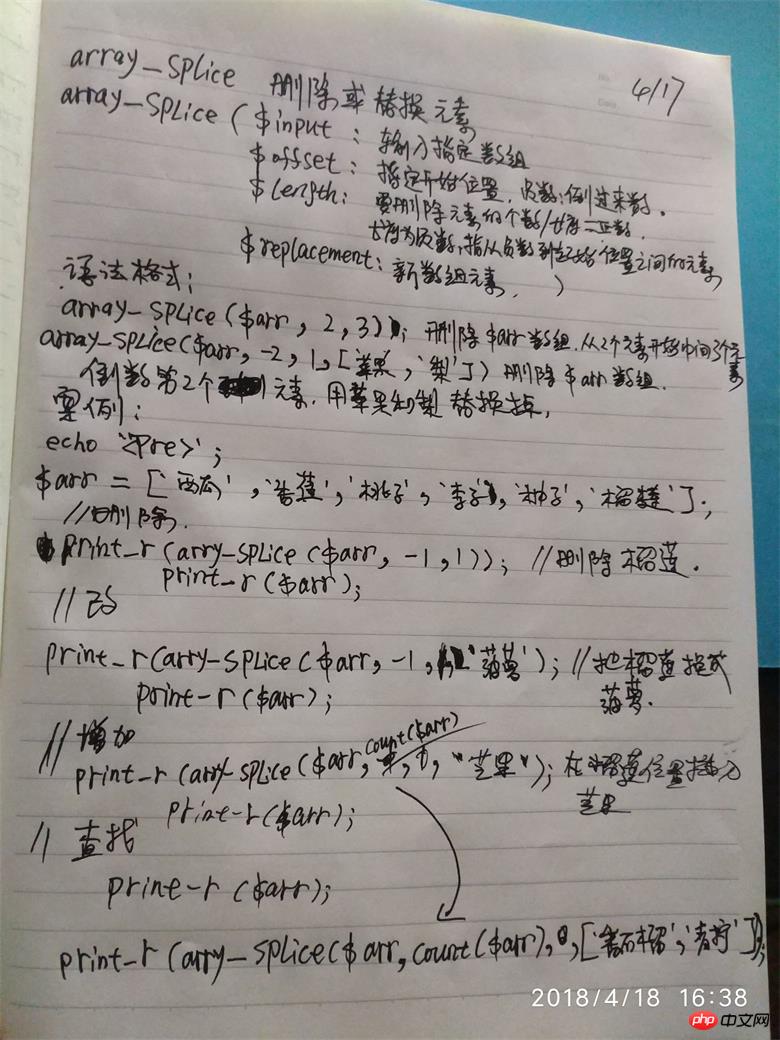 4/17
array_splice 删除或替换元素
array_splice ( $input : 输入指定数组
$offset : 指定开始位置, 负数:倒过来数.
$length : 要删除元素的个数/长度=正数.
长度为负数,指从负数到起始位置之间的元素
$replacement : 新数组元素. )
语法格式:
array_splice ($arr, 2, 3); 删除$arr数组.从2个元素开始中间3个元素
array_splice($arr, -2, 1, ['苹果','梨']) 删除$arr数组.
倒数第2个元素.用苹果和梨替换掉,
案例:
echo '<pre>';
$arr = ['西瓜','香蕉','桃子','李子','柚子','榴莲'];
//删除,
print_r (arry_splice ($arr, -1, 1)); //删除榴莲.
print_r ($arr);
//改
print_r(arry_splice ($arr, -1, '菠萝'); //把榴莲换成
菠萝.
print_r ($arr);
//增加
count($arr)
print_r (arry_splice ($arr, "芒果"); 在榴莲位置插入
芒果
print_r($arr);
// 查找
print_r ($arr);
print_r (arry_splice ($arr, count($arr), 0, ['石榴','青柠']);
2018/4/18 16:38
php 中文网